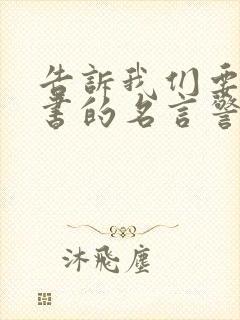 告訴我们要
書的名言警
沐飛塵